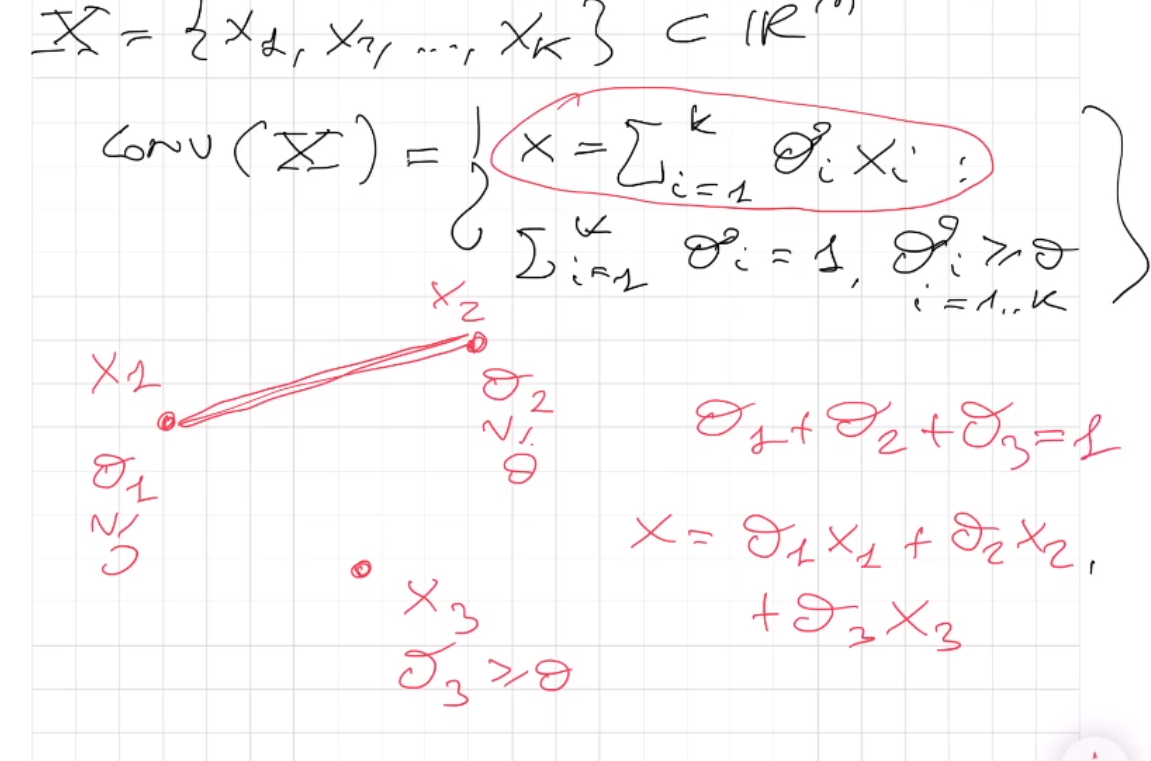 X = {x₁, x₂, ..., x_K} ⊂ ℝⁿ
conv(X) = { x = ∑_{i=1}^{K} θ_i x_i :
∑_{i=1}^{K} θ_i = 1, θ_i ≥ 0 }
i = 1..K
x₂
x₁
θ₂
≥
0
θ₁ + θ₂ + θ₃ = 1
θ₁
≥
0
x = θ₁x₁ + θ₂x₂
+ θ₃x₃
x₃
θ₃ ≥ 0